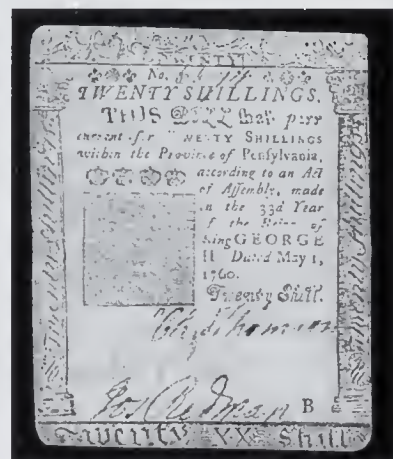 TWENTY
No.
TWENTY SHILLINGS.
THIS BILL shall pass
current for TWENTY SHILLINGS
within the Province of Pensylvania,
according to an Act
of Assembly, made
in the 33d Year
of the Reign of
King GEORGE
II Dated May 1,
1760.
Twenty Shill.
Jos Redman B
Twenty XXs Shill
Twenty Shillings
Twenty Shillings